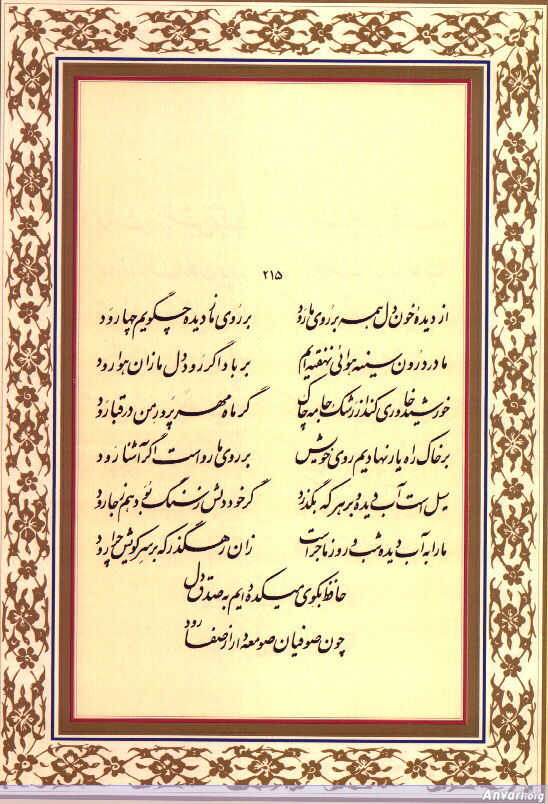 ۲۱۵
از دیده خون دل همه بر روی ما رود بر روی ما ز دیده چگویم چها رود
ما در درون سینه هوائی نهفته ایم بر باد اگر رود دل ما زان هوا رود
خورشید خاوری کند از رشک جامه چاک گر ماه مهر پرور من در قبا رود
بر خاک راه یار نهادیم روی خویش بر روی ما رواست اگر آشنا رود
سیل است آب دیده و بر هر که بگذرد گر خود دلش ز سنگ بود هم ز جا رود
ما را به آب دیده شب و روز ماجراست زان رهگذر که بر سر کویش چرا رود
حافظ بکوی میکده دایم به صدق دل
چون صوفیان صومعه دار از صفا رود
Anvari.org